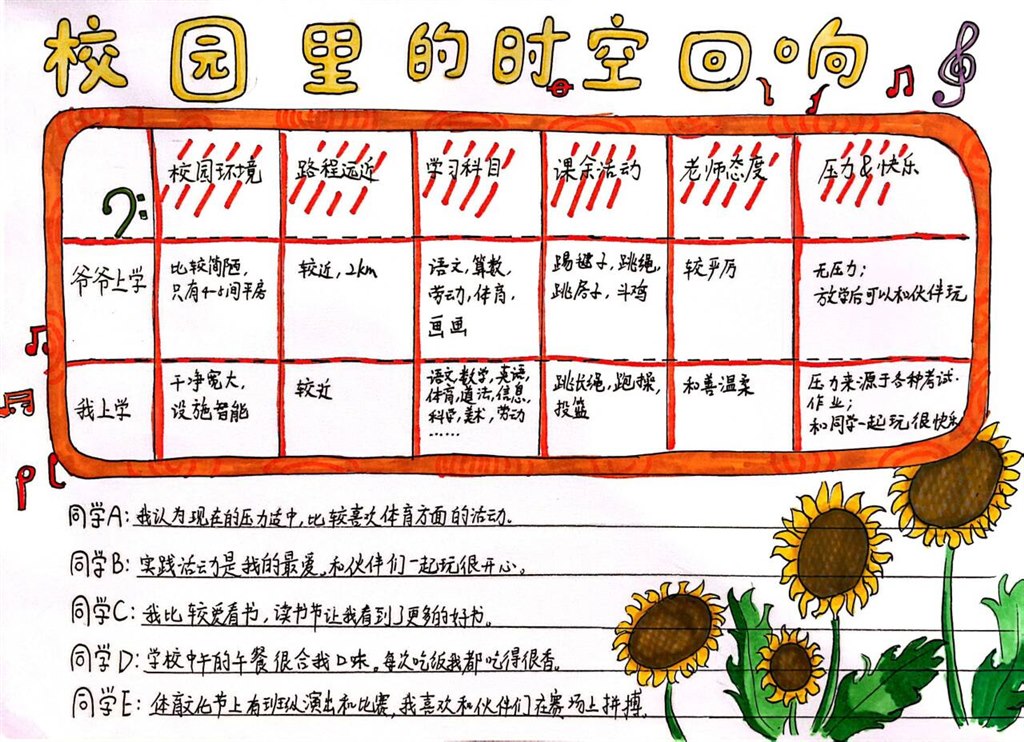 校园里的时空回响
校园环境 路程远近 学习科目 课余活动 老师态度 压力&快乐
爷爷上学
比较简陋,
只有4-5间平房
较近,2km
语文,算数,
劳动,体育,
画画
踢毽子,跳绳,
跳房子,斗鸡
较严厉
无压力;
放学后可以和伙伴玩
我上学
干净宽大,
设施智能
较近
语文,数学,英语,
体育,道法,信息,
科学,美术,劳动
……
跳长绳,跑操,
投篮
和善温柔
压力来源于各种考试.
作业;
和同学一起玩很快乐
同学A:我认为现在的压力适中,比较喜欢体育方面的活动。
同学B:实践活动是我的最爱。和伙伴们一起玩很开心。
同学C:我比较爱看书,读书节让我看到了更多的好书。
同学D:学校中午的午餐很合我口味。每次吃饭我都吃得很香。
同学E:体育文化节上有班级演出和比赛,我喜欢和伙伴们在赛场上拼搏。